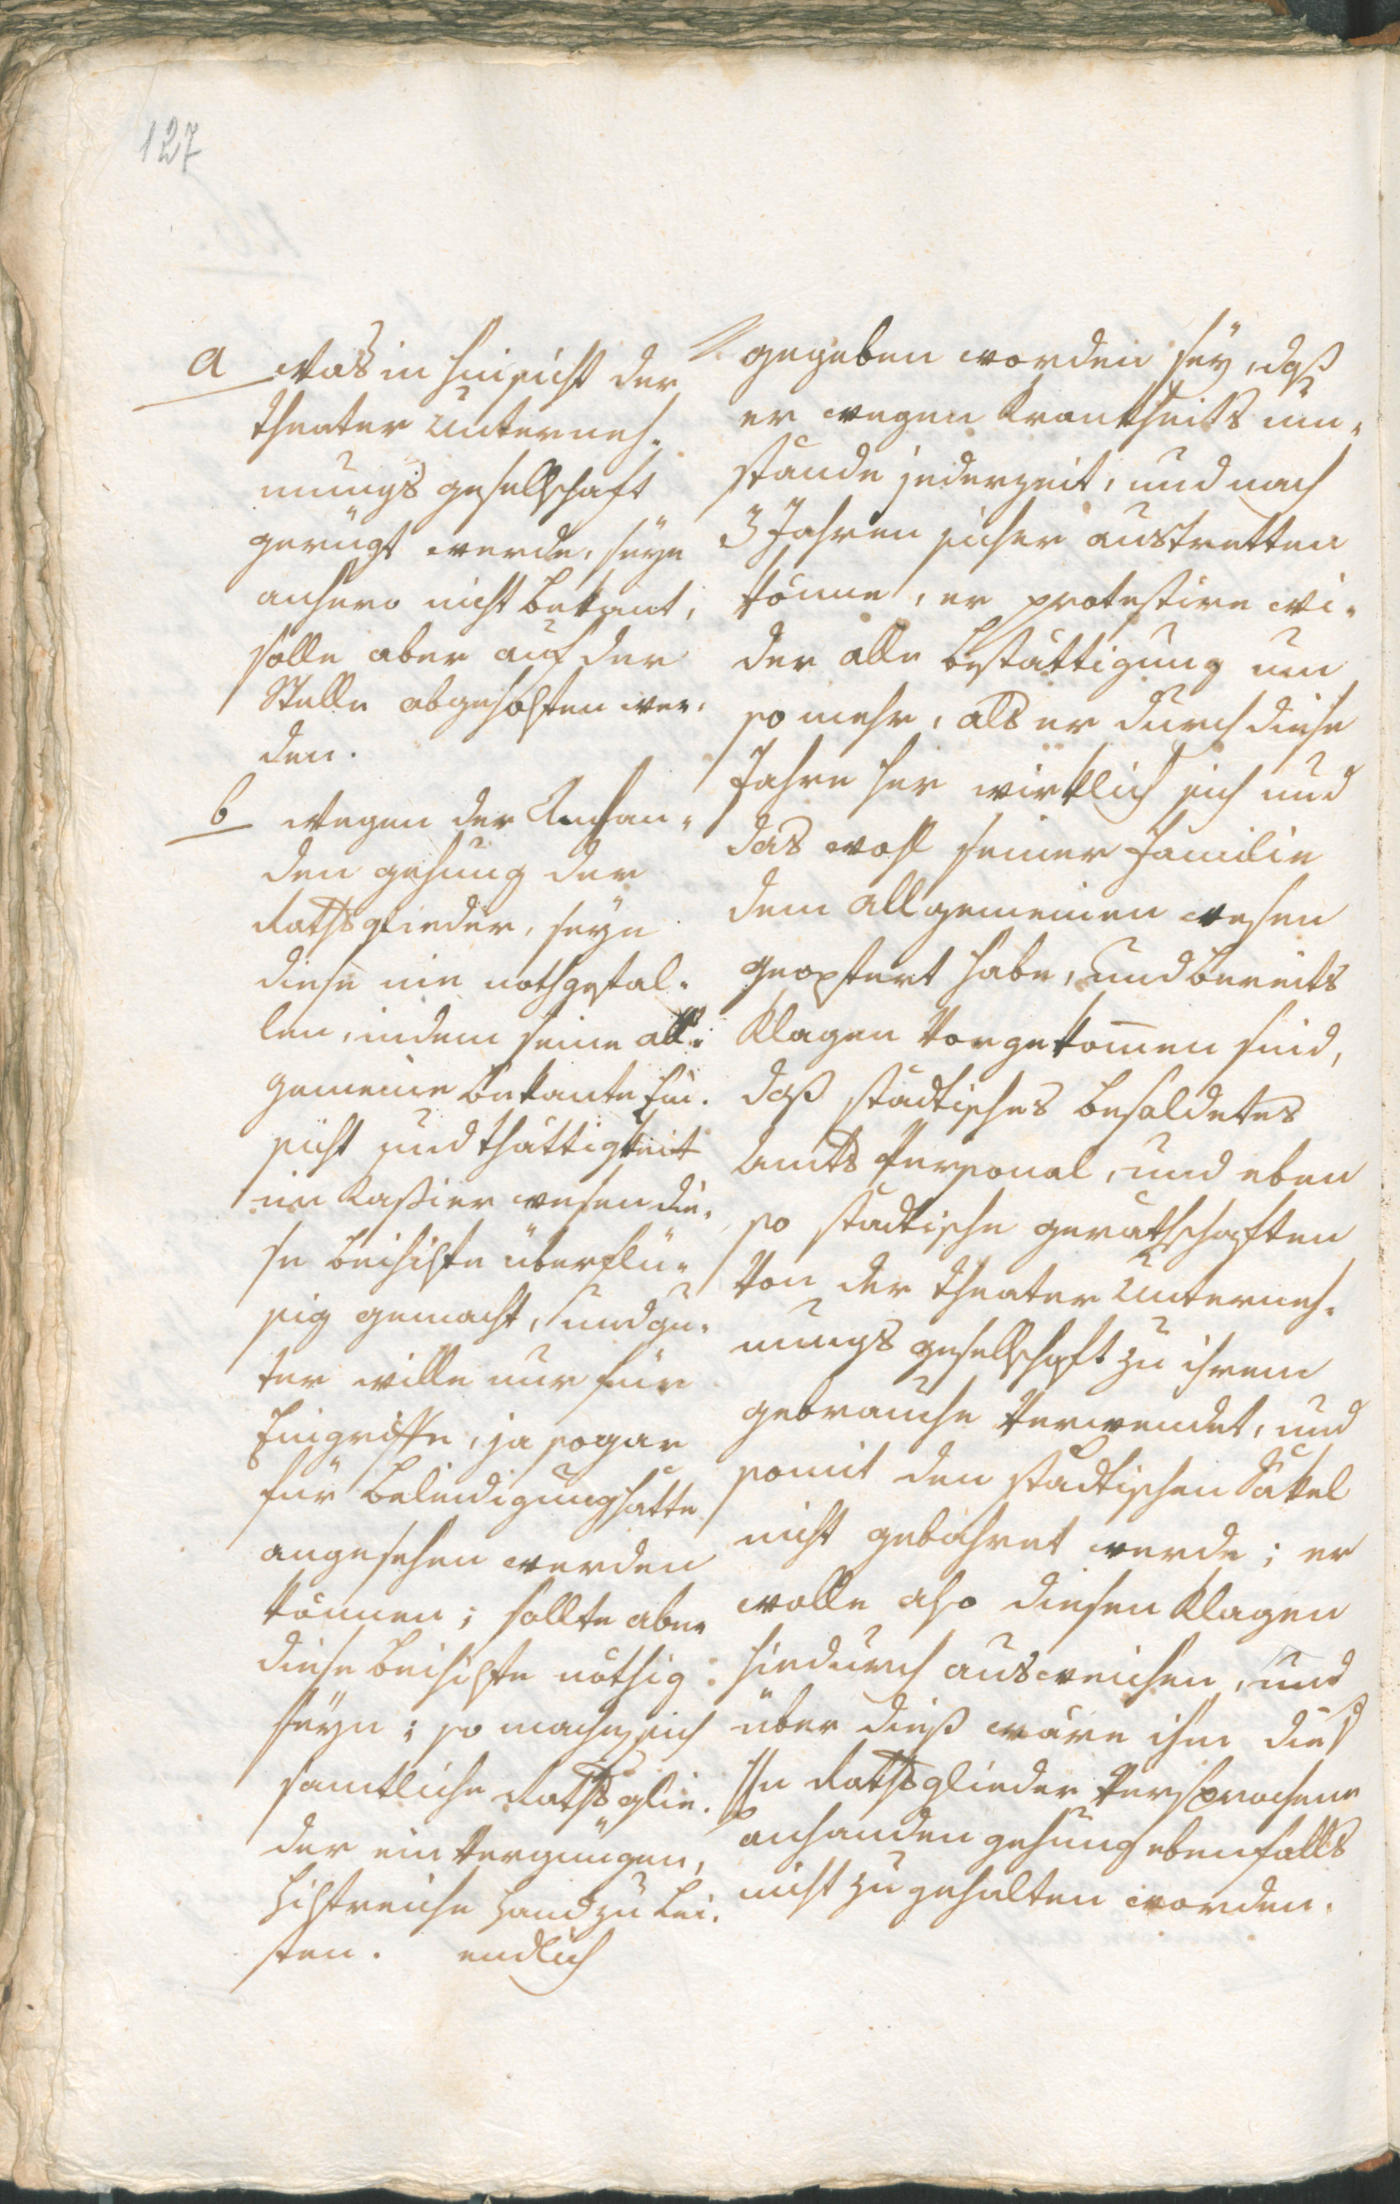 127
a was in hinsicht der
theater Unterneh-
mungs gesellschaft
gerügt werde, seye
anhero nicht bekant,
solle aber auf der
Stelle abgeholfen wer-
den.
b wegen der Anhan-
den gehung der
Rathsglieder, seye
diese nie nothgefal-
len, indem seine all-
gemeine bekante Ein-
sicht und thättigkeit
im Kaßier wesen die-
se beihilfe überflü-
ßig gemacht, und gu-
ter wille nur für
Eingriffe, ja sogar
für beleidigung hätte
angesehen werden
können; sollte aber
diese beihilfe nöthig
seyn; so mache sich
samtliche Rathsglie-
der ein Vergnügen,
hilfreiche Hand zu lei-
sten. endlich
gegeben worden seÿ, daß
er wegen Krankheits um-
stände jederzeit, und nach
3 Jahren sicher austretten
könne, er protestire wi-
der alle bestättigung um
so mehr, als er durch diese
Jahre her wirklich sich und
das wohl seiner familie
dem allgemeinen wesen
geopfert habe, und bereits
Klagen Vorgekommen sind,
daß städtisches besoldetes
Amts Personal, und eben
so städtische geräthschaften
Von der theater Unterneh-
mungs gesellschaft zu ihrem
gebrauche Verwendet, und
somit den städtischen Säkel
nicht gebahret werde; er
wolle also diesen Klagen
hiedurch ausweichen, und
über dieß wäre ihm die
Rathsglieder Versprochene
anhanden gehung ebenfalls
nicht zu gehalten worden.